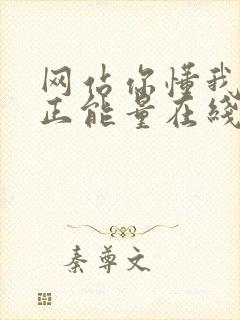 网站你懂我
正能量在线
秦尊文